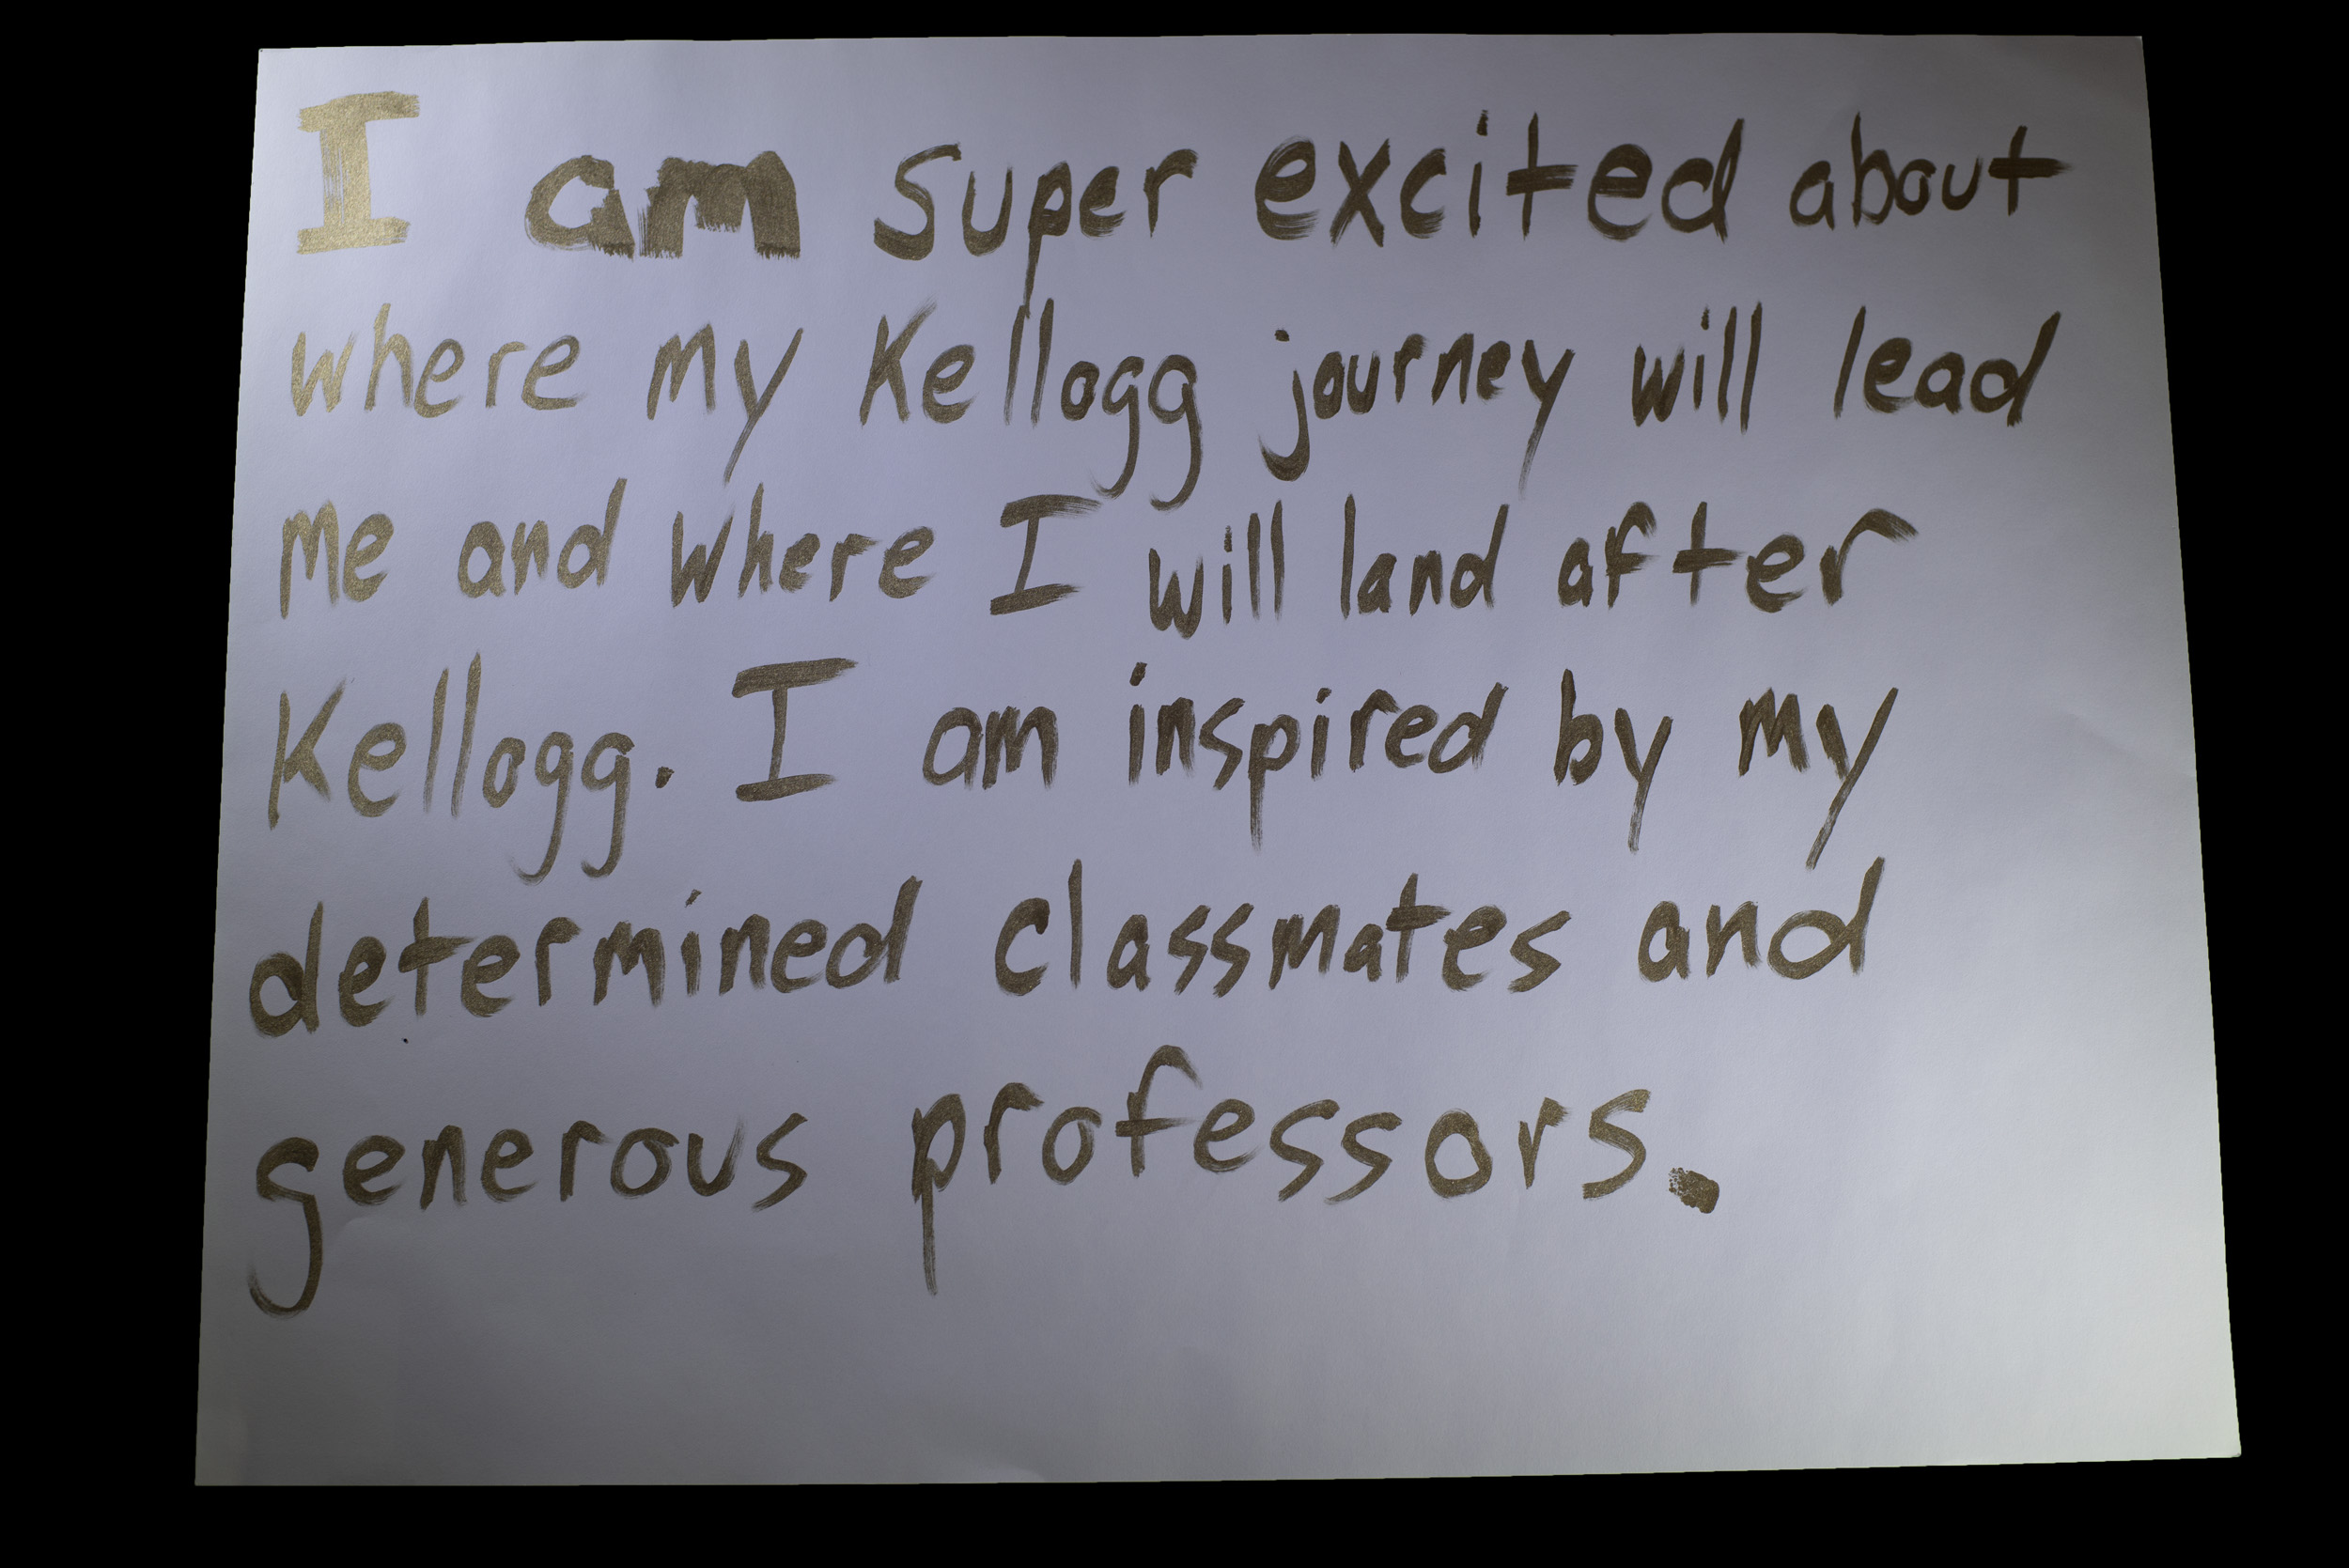 I am super excited about
where my Kellogg journey will lead
me and where I will land after
Kellogg. I am inspired by my
determined classmates and
generous professors.